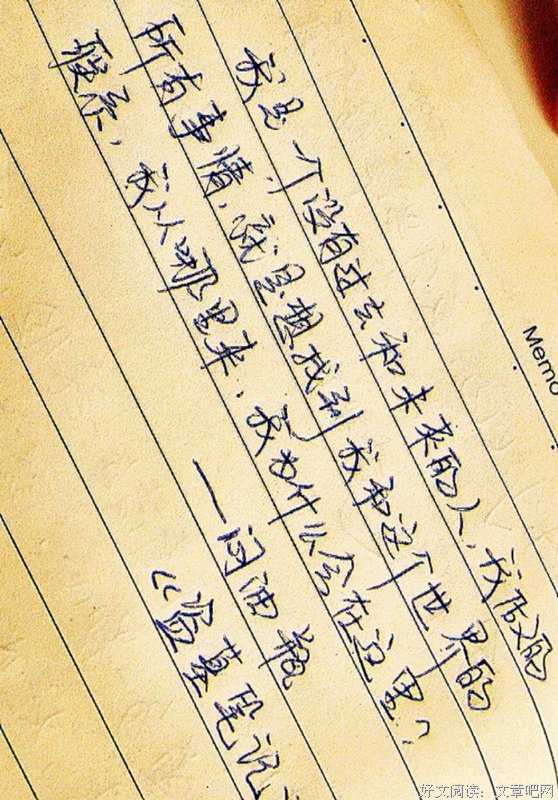 Memo
我是一个没有过去和未来的人，我做的
所有事情，就是想找到我和这个世界的
联系，我从哪里来，我为什么会在这里？
—闷油瓶
《盗墓笔记
好文阅读：文章吧网